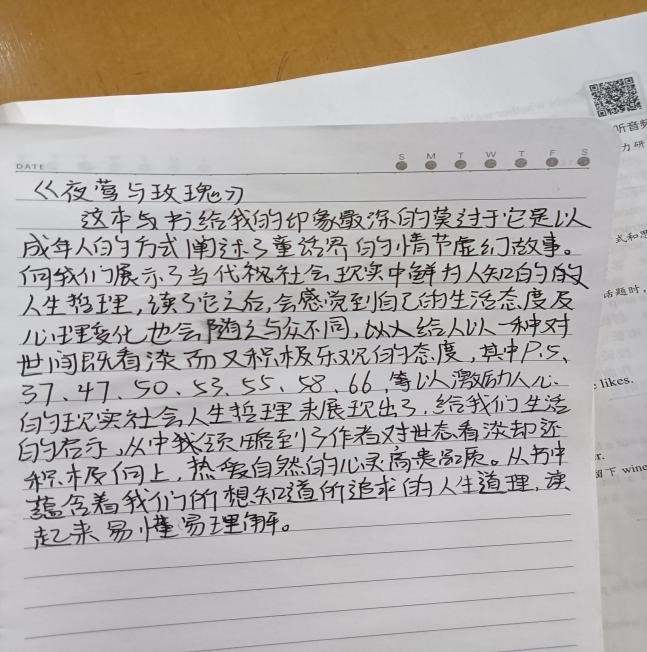 DATE
S M T W T F S
《夜莺与玫瑰》
这本与书给我的印象最深的莫过于它是以
成年人的方式阐述了童话界的情节虚幻故事。
向我们展示了当代视社会现实中鲜为人知的的
人生哲理,读了它之后,会感觉到自己的生活态度及
心理变化也会随之与众不同,以人给人以一种对
世间既看淡而又积极乐观的态度,其中P.5、
37、47、50、53、55、58、66,等以激励人心
的现实社会人生哲理来展现出了,给我们生活
的启示,从中我领略到了作者对世态看淡却还
积极向上,热爱自然的心灵高贵品质。从书中
蕴含着我们所想知道所追求的人生道理,读
起来易懂易理解。
听音频
力研
式和思
话题时,
likes.
r.
留下 wine